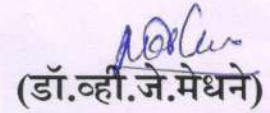 (डॉ.व्ही.जे.मेधने)